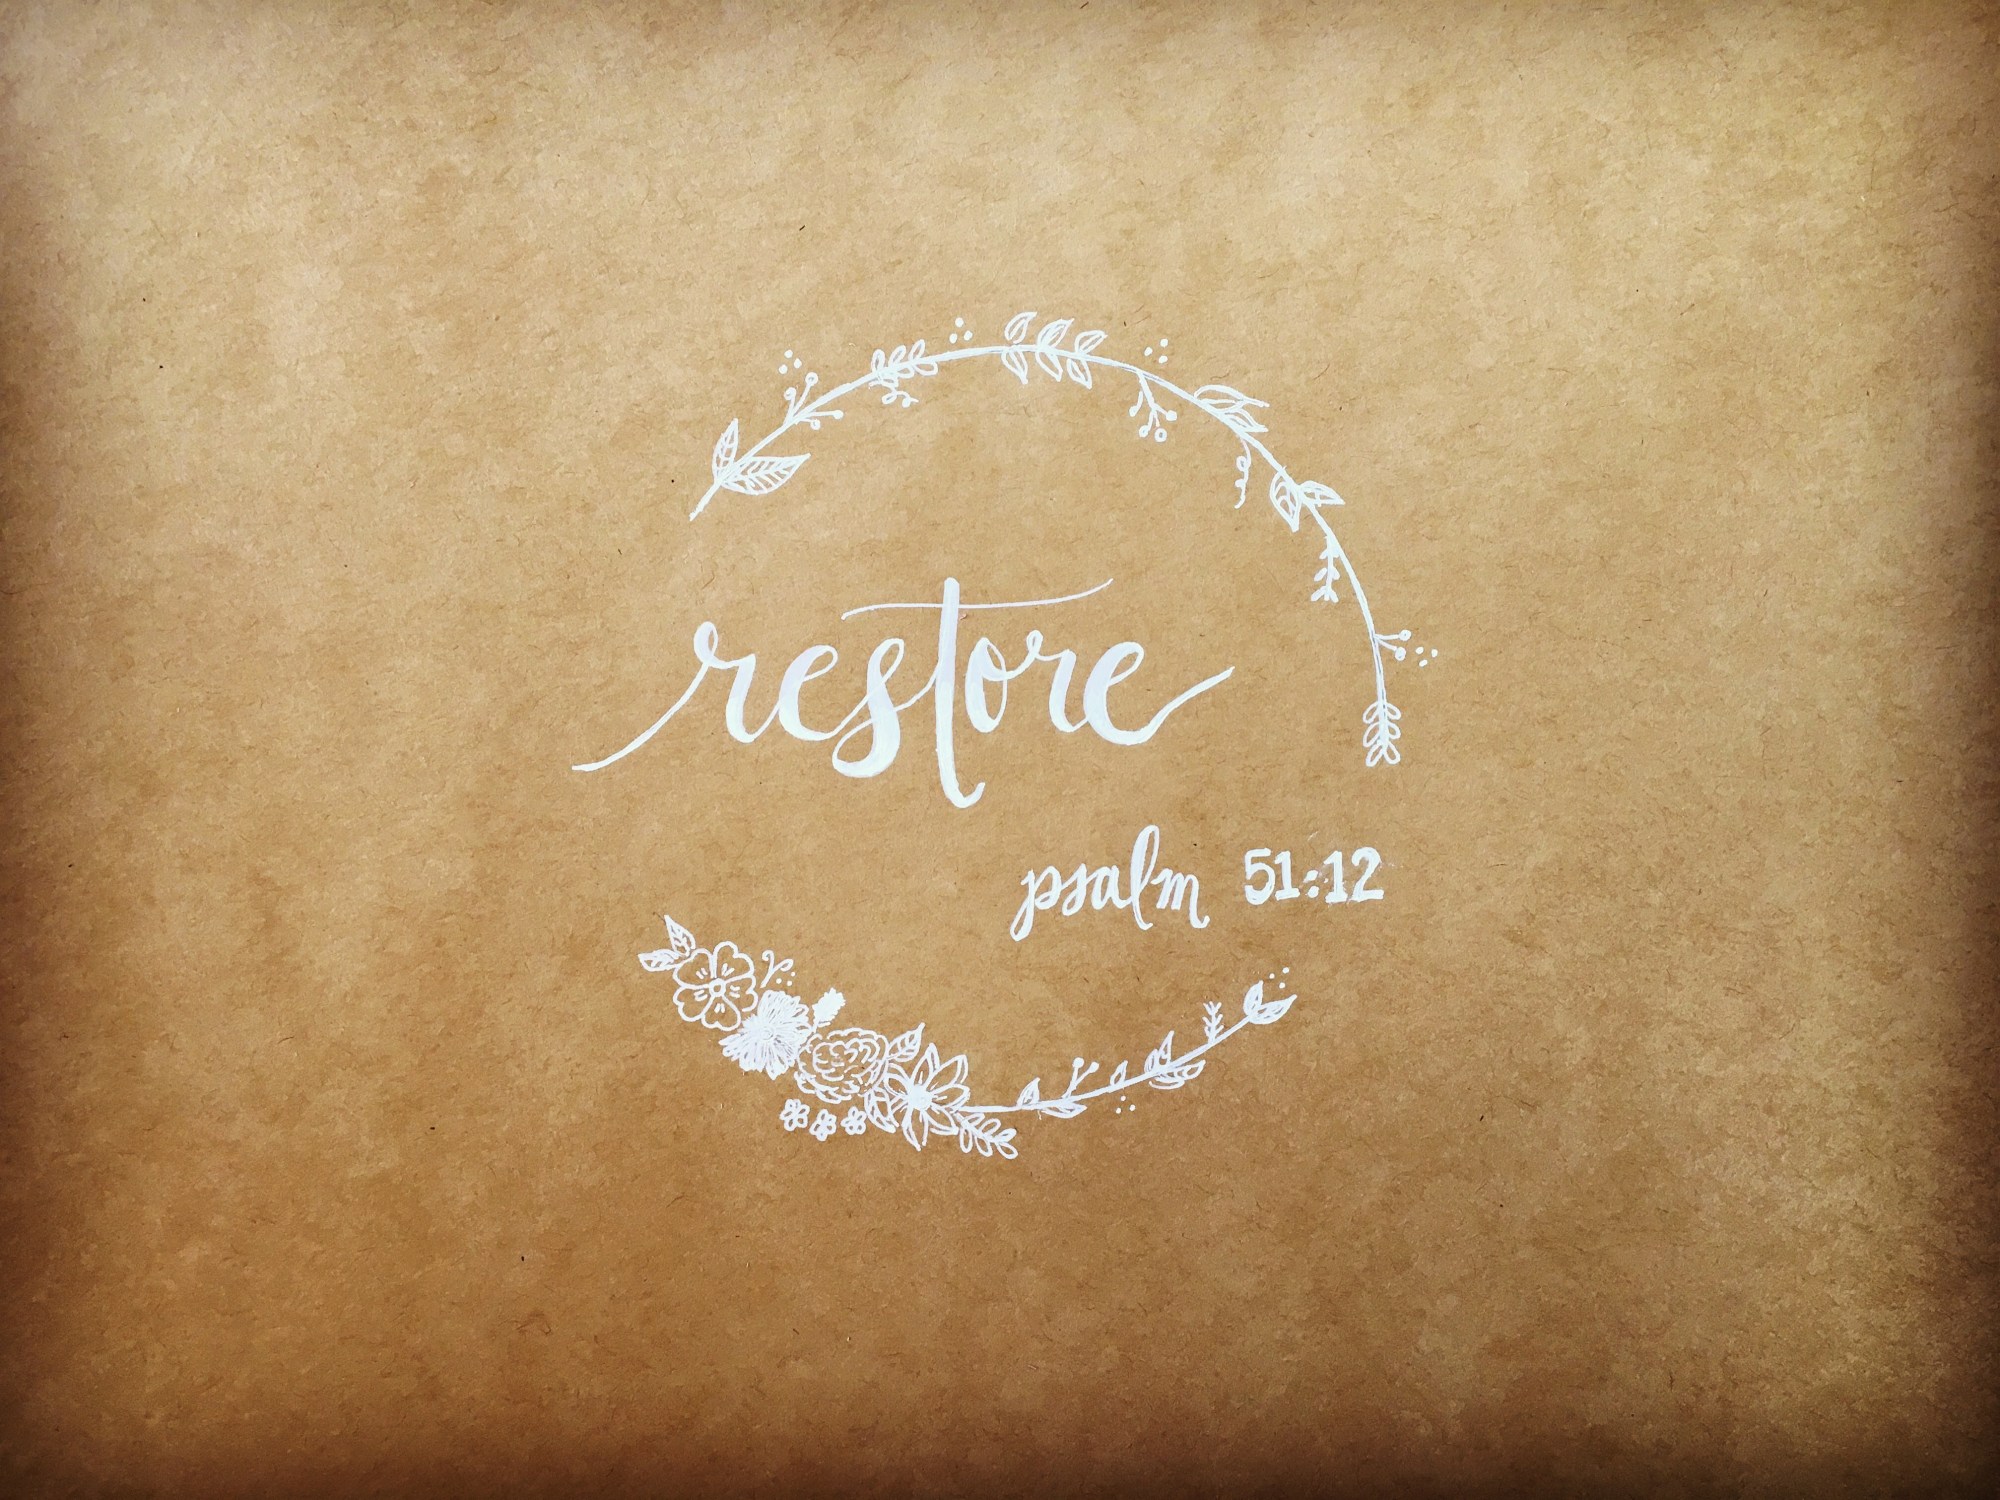 restore
psalm 51:12